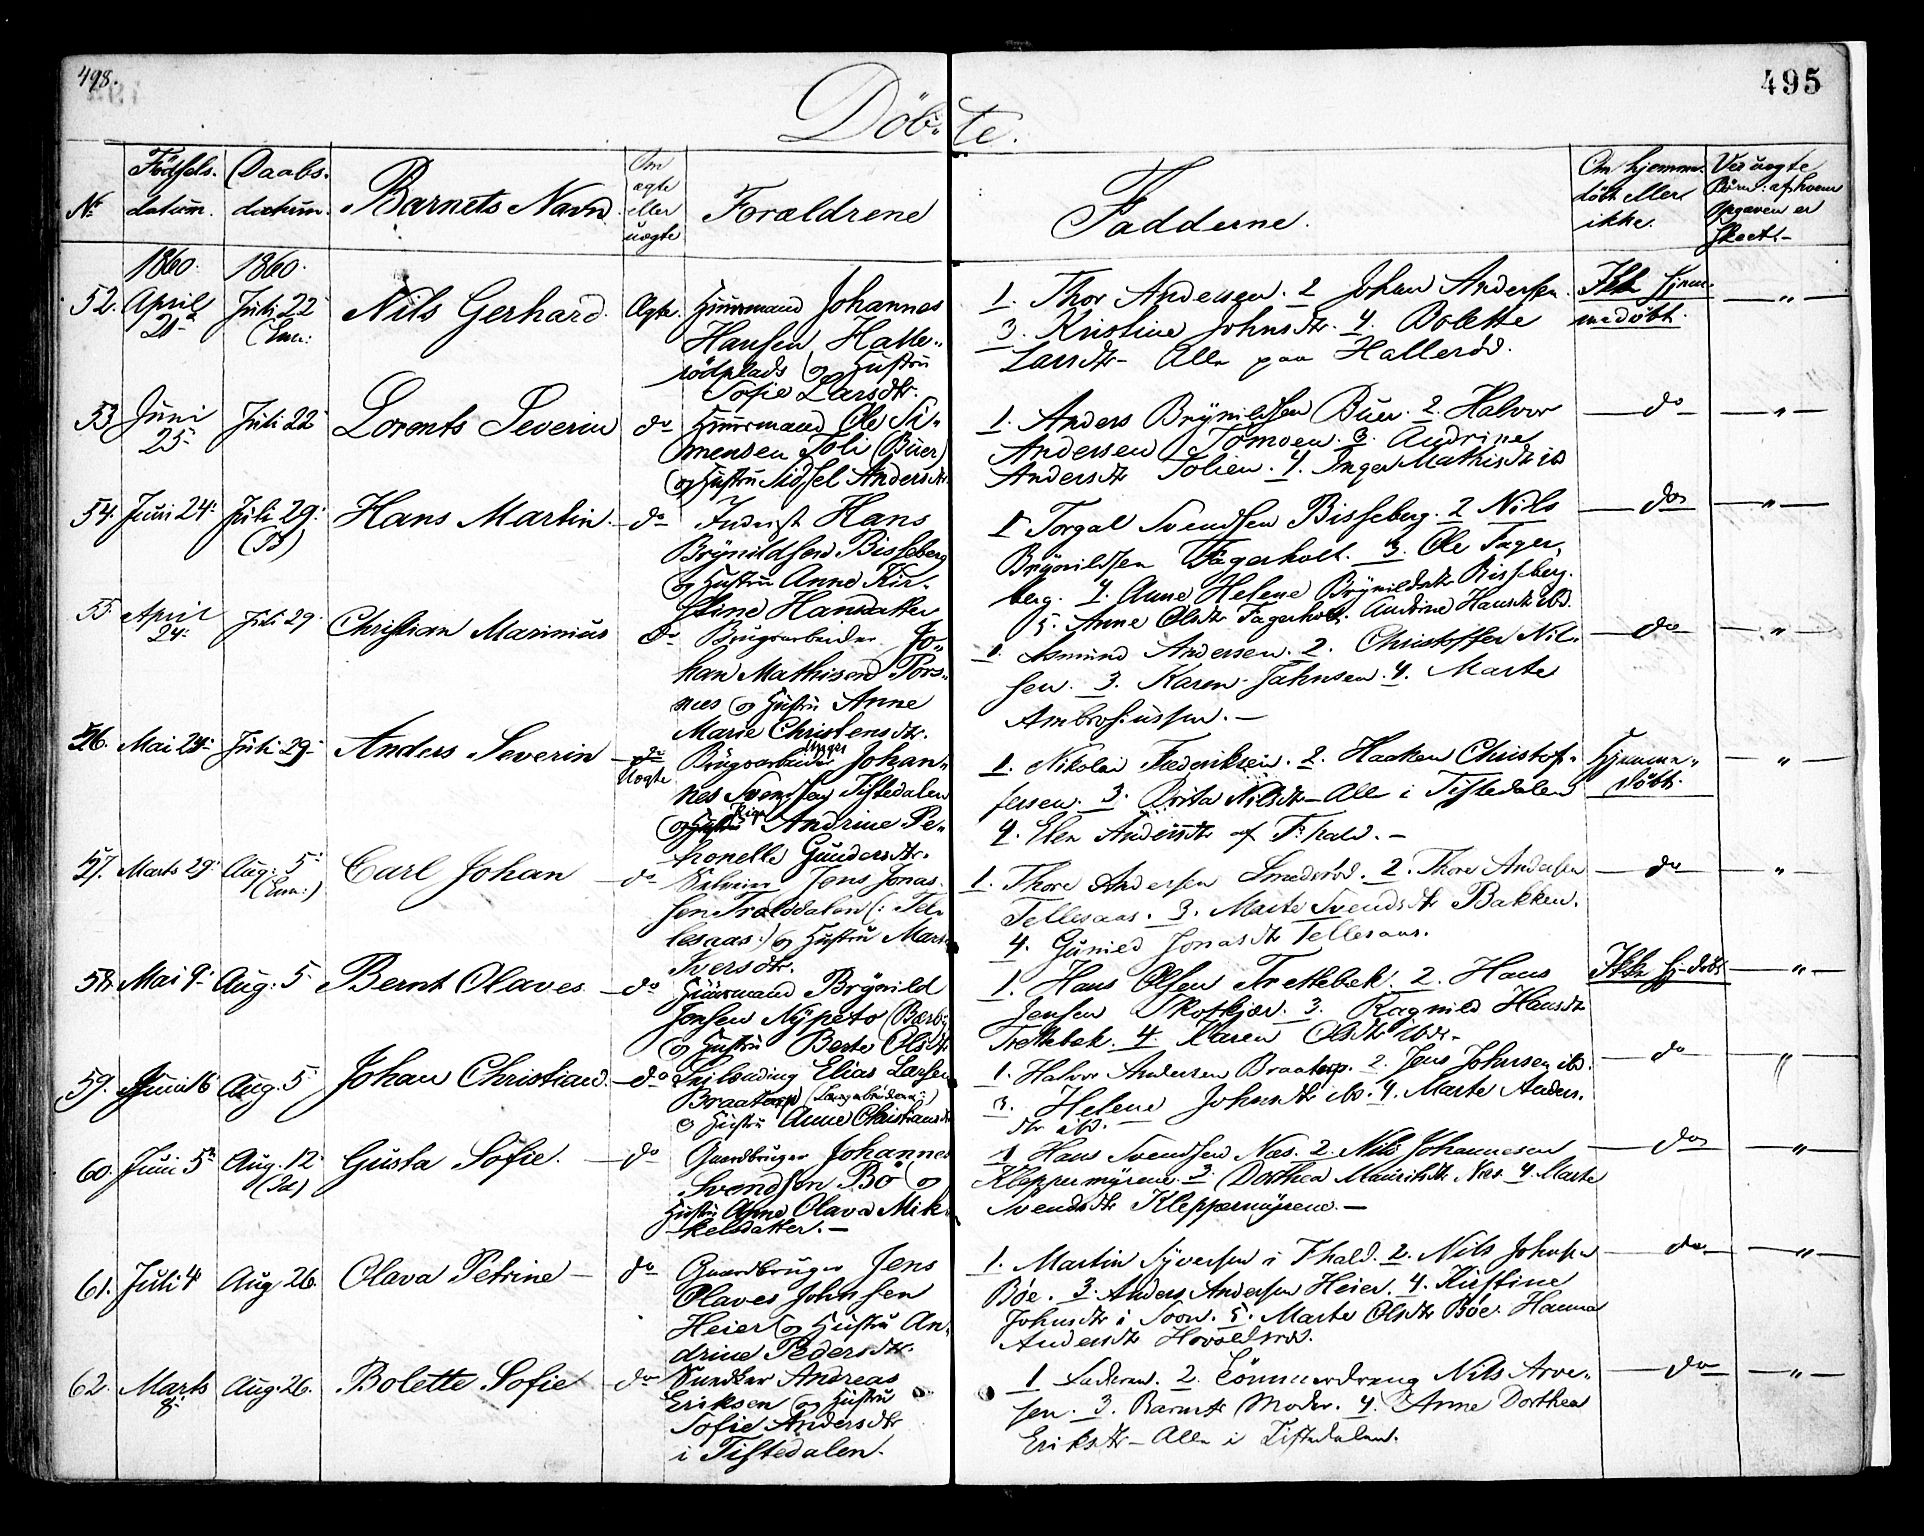 498.
495
Döbte.
No
Födsels-
datum.
Daabs-
datum.
Barnets Navn
Om
ægte
eller
uægte
Forældrene
Fadderne.
Om hjemme-
döbt eller
ikke.
Ved uægte
Börn: af hvem
Opgaven er
skeet.-
1860. 1860.
52. April Juli 22 Nils Gerhard. Ægte. Huusmand Johannes
21 (Enn:
Hansen Halle-
rödplads og Hustru
Sofie Larsdtr.
1. Thor Andersen. 2 Johan Andersen.
3. Kristine Johnsdtr. 4. Bolette
Larsdtr- Alle paa Halleröd.
Ikke hjem-
medöbt.
53 Juni Juli 22 Lorents Severin do Huusmand Ole Si-
25
mensen Toli (Buer)
og Hustru Sidsel Andersdtr.
1. Anders Brynildsen Buer. 2. Halvor
Andersen Tomoen. 3. Andrine
Andersdtr Solien. 4. Inger Mathisdtr ib
do
54. Juni 24 Juli 29 Hans Martin do Inderst Hans
Brynildsen Bisseberg
og Hustru Anne Kir-
stine Hansdatter
1 Torgal Svendsen Bisseberg. 2 Nils
Brynildsen Fagerholt. 3. Ole Fager-
berg. 4. Anne Helene Brynildsdtr Bisseberg.
5. Anne Olsdtr Fagerholt. Andrine Hansdtr ibd.
do
55. April Juli 29 Christian Marinius do Brugsarbeider Jo-
24
han Mathisen Pors-
nes og Hustru Anne
Marie Christensdtr.
1. Asmund Andersen. 2. Christoffer Nil-
sen. 3. Karen Jahnsen. 4. Marte
Ambrosiussen.-
do
56. Mai 24 Juli 29 Anders Severin do Brugsarbeider Johan-
Uægte
Ungkar
nes Svendsen Tistedalen
og Hustru Pige Andrine Pe-
tronelle Gundersdtr.
1. Nikolai Frederiksen. 2. Haaken Christof-
fersen. 3. Berta Nilsdtr- Alle i Tistedalen
4. Elen Andersdtr af F:hald.-
Hjemme-
döbt.
57. Marts 29 Aug: 5 Carl Johan do Selveier Jens Jonas-
(Enn:)
sen Tralsdalen (: Tel-
lesaas:) og Hustru Marte
Iversdtr.
1. Thore Andersen Smedöröd. 2. Thore Andersen
Tellesaas. 3. Marte Svendsdtr Bakken.
4. Gunild Jonasdtr Tellesaas.
do
58. Mai 9 Aug: 5 Bernt Olaves do Huusmand Brynild
Jensen Nypeto (Bærby
og Hustru Berte Olsdtr
1. Hans Olsen Trettebak. 2. Hans
Jensen Skotkjær. 3. Ragnild Hansdtr
Trettebak. 4. Karen Olsdtr ibd.-
Ikke hj-döbt
59. Juni 16 Aug: 5 Johan Christian. do Leilending Elias Larsen
Braatorp
og Hustru Anne Christiansdtr
1. Halvor Andersen Braatorp. 2. Jens Johnsen ib.
3. Helene Johnsdtr ib. 4. Marte Anders-
dtr ib.
do
60. Juni 5 Aug. 12 Gusta Sofie. do Gaardbruger Johannes
(Id)
Svendsen Bö og
Hustru Anne Olava Mik-
kelsdatter.-
1 Hans Svendsen Næs. 2. Nils Johannesen
Kleppermyrene. 3. Dorthea Mauritsdtr Næs. 4. Marte
Svendsdtr Kleppermyrene.-
do
61. Juli 4 Aug 26. Olava Petrine do Gaardbruger Jens
Olaves Johnsen
Heier og Hustru An-
drine Pedersdtr.
1. Martin Syversen i Fhald. 2. Nils Johnsen
Böe. 3. Anders Andersen Heier. 4. Kirstine
Johnsdtr i Soon. 5. Marte Olsdtr Böe. Hanna
Andersdtr
do
62. Marts Aug. 26. Bolette Sofie do Snedker Andreas
8
Eriksen og Hustru
Sofie Andersdtr
i Tistedalen.
1 Faderen. 2. Tömmerdreng Nils Arve-
sen. 3. Barnets Moder. 4. Anne Dorthea
Eriksdtr- Alle i Tistedalen.
do